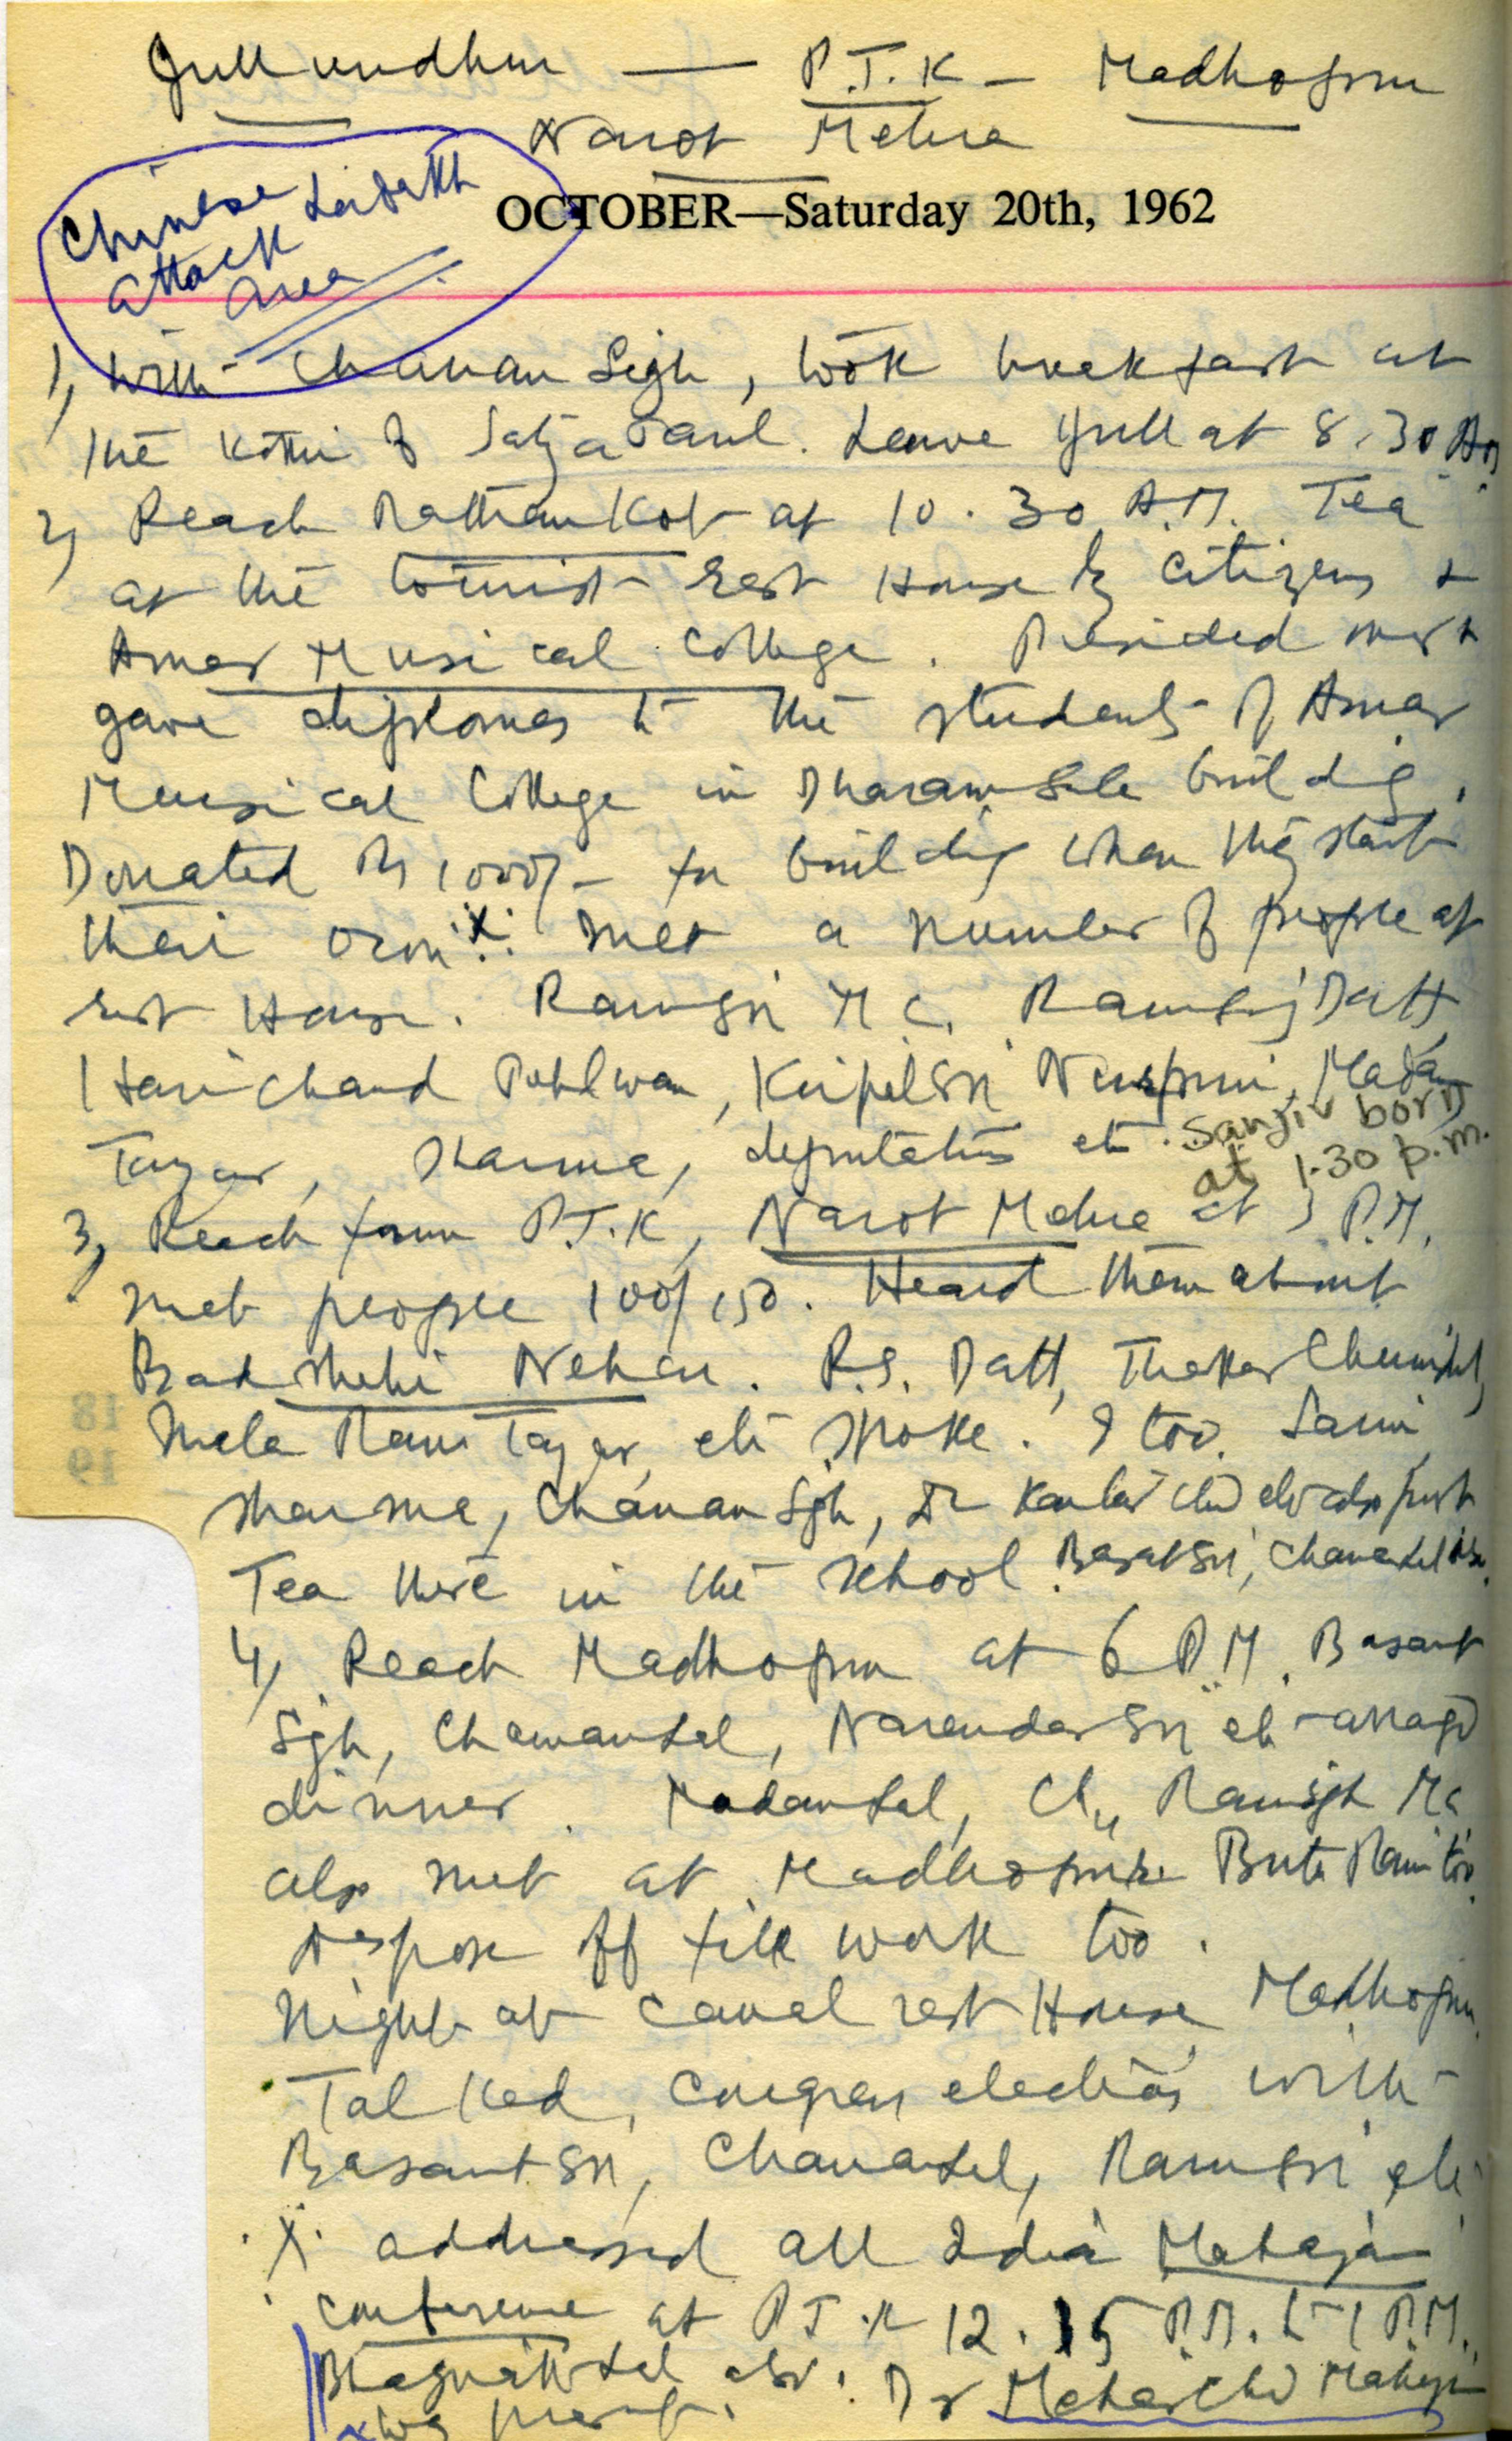 Jullundhur — P.T.K — Madhopur
Narot Mehra
OCTOBER—Saturday 20th, 1962
Chinese
attack Ladakh
area
1, With Chanan Sigh, took breakfast at
the Kothi of Satya Paul. Leave Jull at 8.30 Am
2, Reach Pathankot at 10.30 A.M. Tea
at the tourist rest House by citizens &
Amar Musical College. Presided over &
gave diplomas to the students of Amar
Musical College in Dharamsala buildig.
Donated Rs 1000/- for buildig when they start
their own X Met a number of people at
rest House. Ramsn M C, Ramsj Datt,
Harichand Pahlwan, Kirpal Sn Nurpuri, Madan
Sanjiv born
at 1.30 p.m.
Tayar, Sharma, deputations etc.
3, Reach from P.T.K, Narot Mehra at 3 P.M.
met people 100/150. Heard them about
Badshahi Nehar. R.S. Datt, Thakar
Mela Ram Tayar, etc spoke. I too.
Sharma, Chanan Sgh, Dr
Tea there in the school. Basat Sn,
4, Reach Madhopur at 6 P.M. Basant
Sgh, Chamanlal, Narendar Sn etc
dinner. Madanlal, Ch, Ramsgh Mc
also met at Madhopur. Buta Ram too.
Dispose off file work too.
Night at Canal rest House Madhopur.
Talked, congress elections with
Basant Sn, Chamanlal, Ramsn etc
X addressed all India Mahajan
Conference at P.T.K 12.15 P.M. to 1 P.M.
Bhagwathlal Dr Meharchd Mahajan
was present.